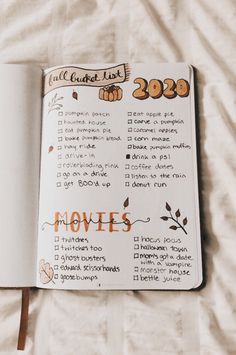 fall bucket list
2020
pumpkin patch
haunted house
eat pumpkin pie
bake pumpkin bread
hay ride
drive-in
rollerblading rink
go on a drive
get BOO'd up
eat apple pie
carve a pumpkin
caramel apples
corn maze
bake pumpkin muffins
drink a psl
coffee dates
listen to the rain
donut run
MOVIES
movies
twitches
twitches too
ghost busters
edward scissorhands
goosebumps
hocus pocus
halloween town
mom's got a date
with a vampire
monster house
beetle juice